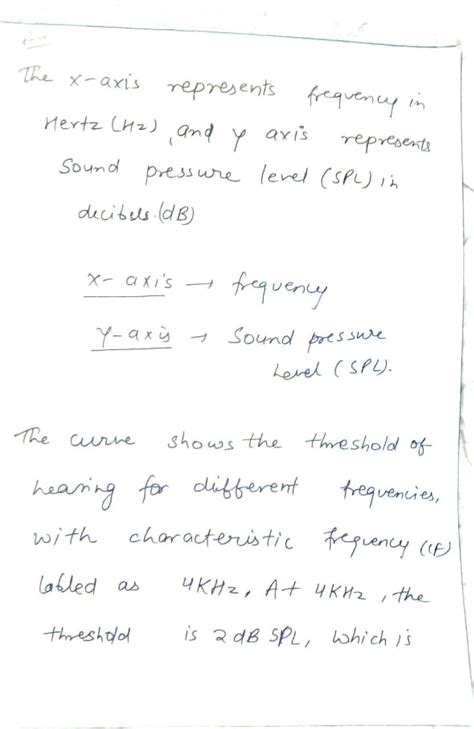 The x-axis represents frequency in
Hertz (Hz), and y axis represents
Sound pressure level (SPL) in
decibels.(dB)
x- axis → frequency
Y-axis → Sound pressure
Level (SPL).
The curve shows the threshold of
hearing for different frequencies,
with characteristic frequency (CF)
labled as 4KHz, At 4KHz, the
threshold is 2dB SPL, which is